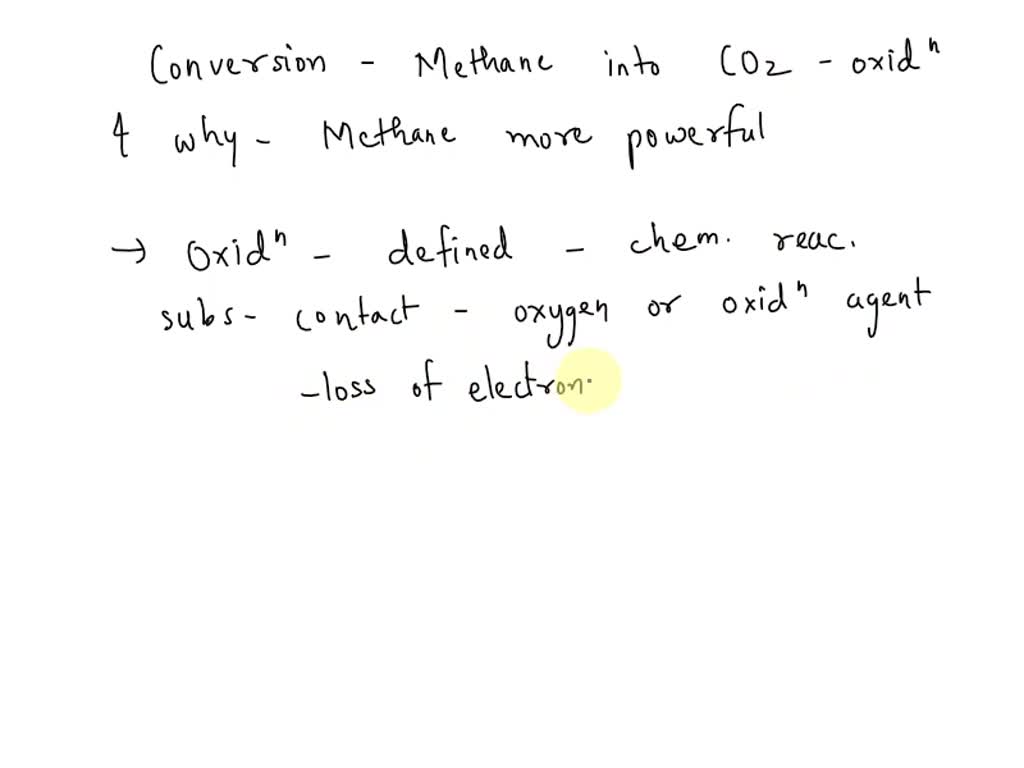 Conversion - Methane into CO2 - oxidⁿ
& why - Methane more powerful
→ Oxidⁿ - defined - chem. reac.
subs - contact - oxygen or oxidⁿ agent
- loss of electron.